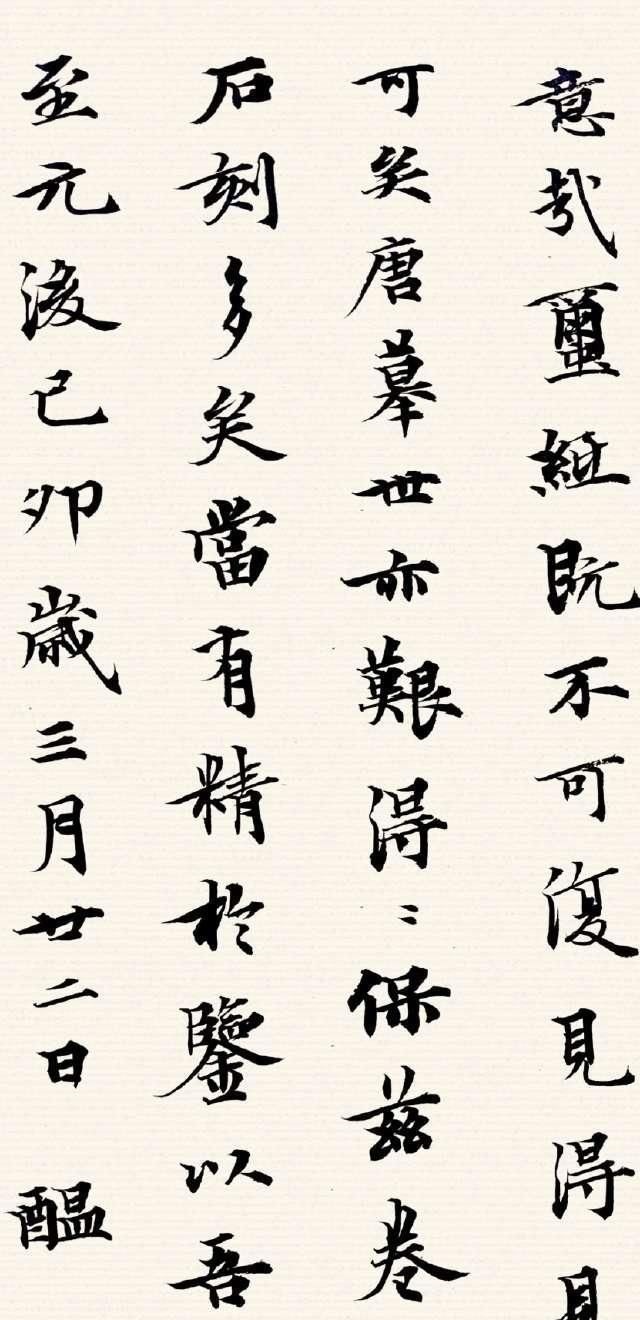 意哉璽紙既不可復見得見
可矣唐摹世亦艱得〻保茲卷
石刻多矣當有精於鑒以吾
至元後己卯歲三月廿二日 醖